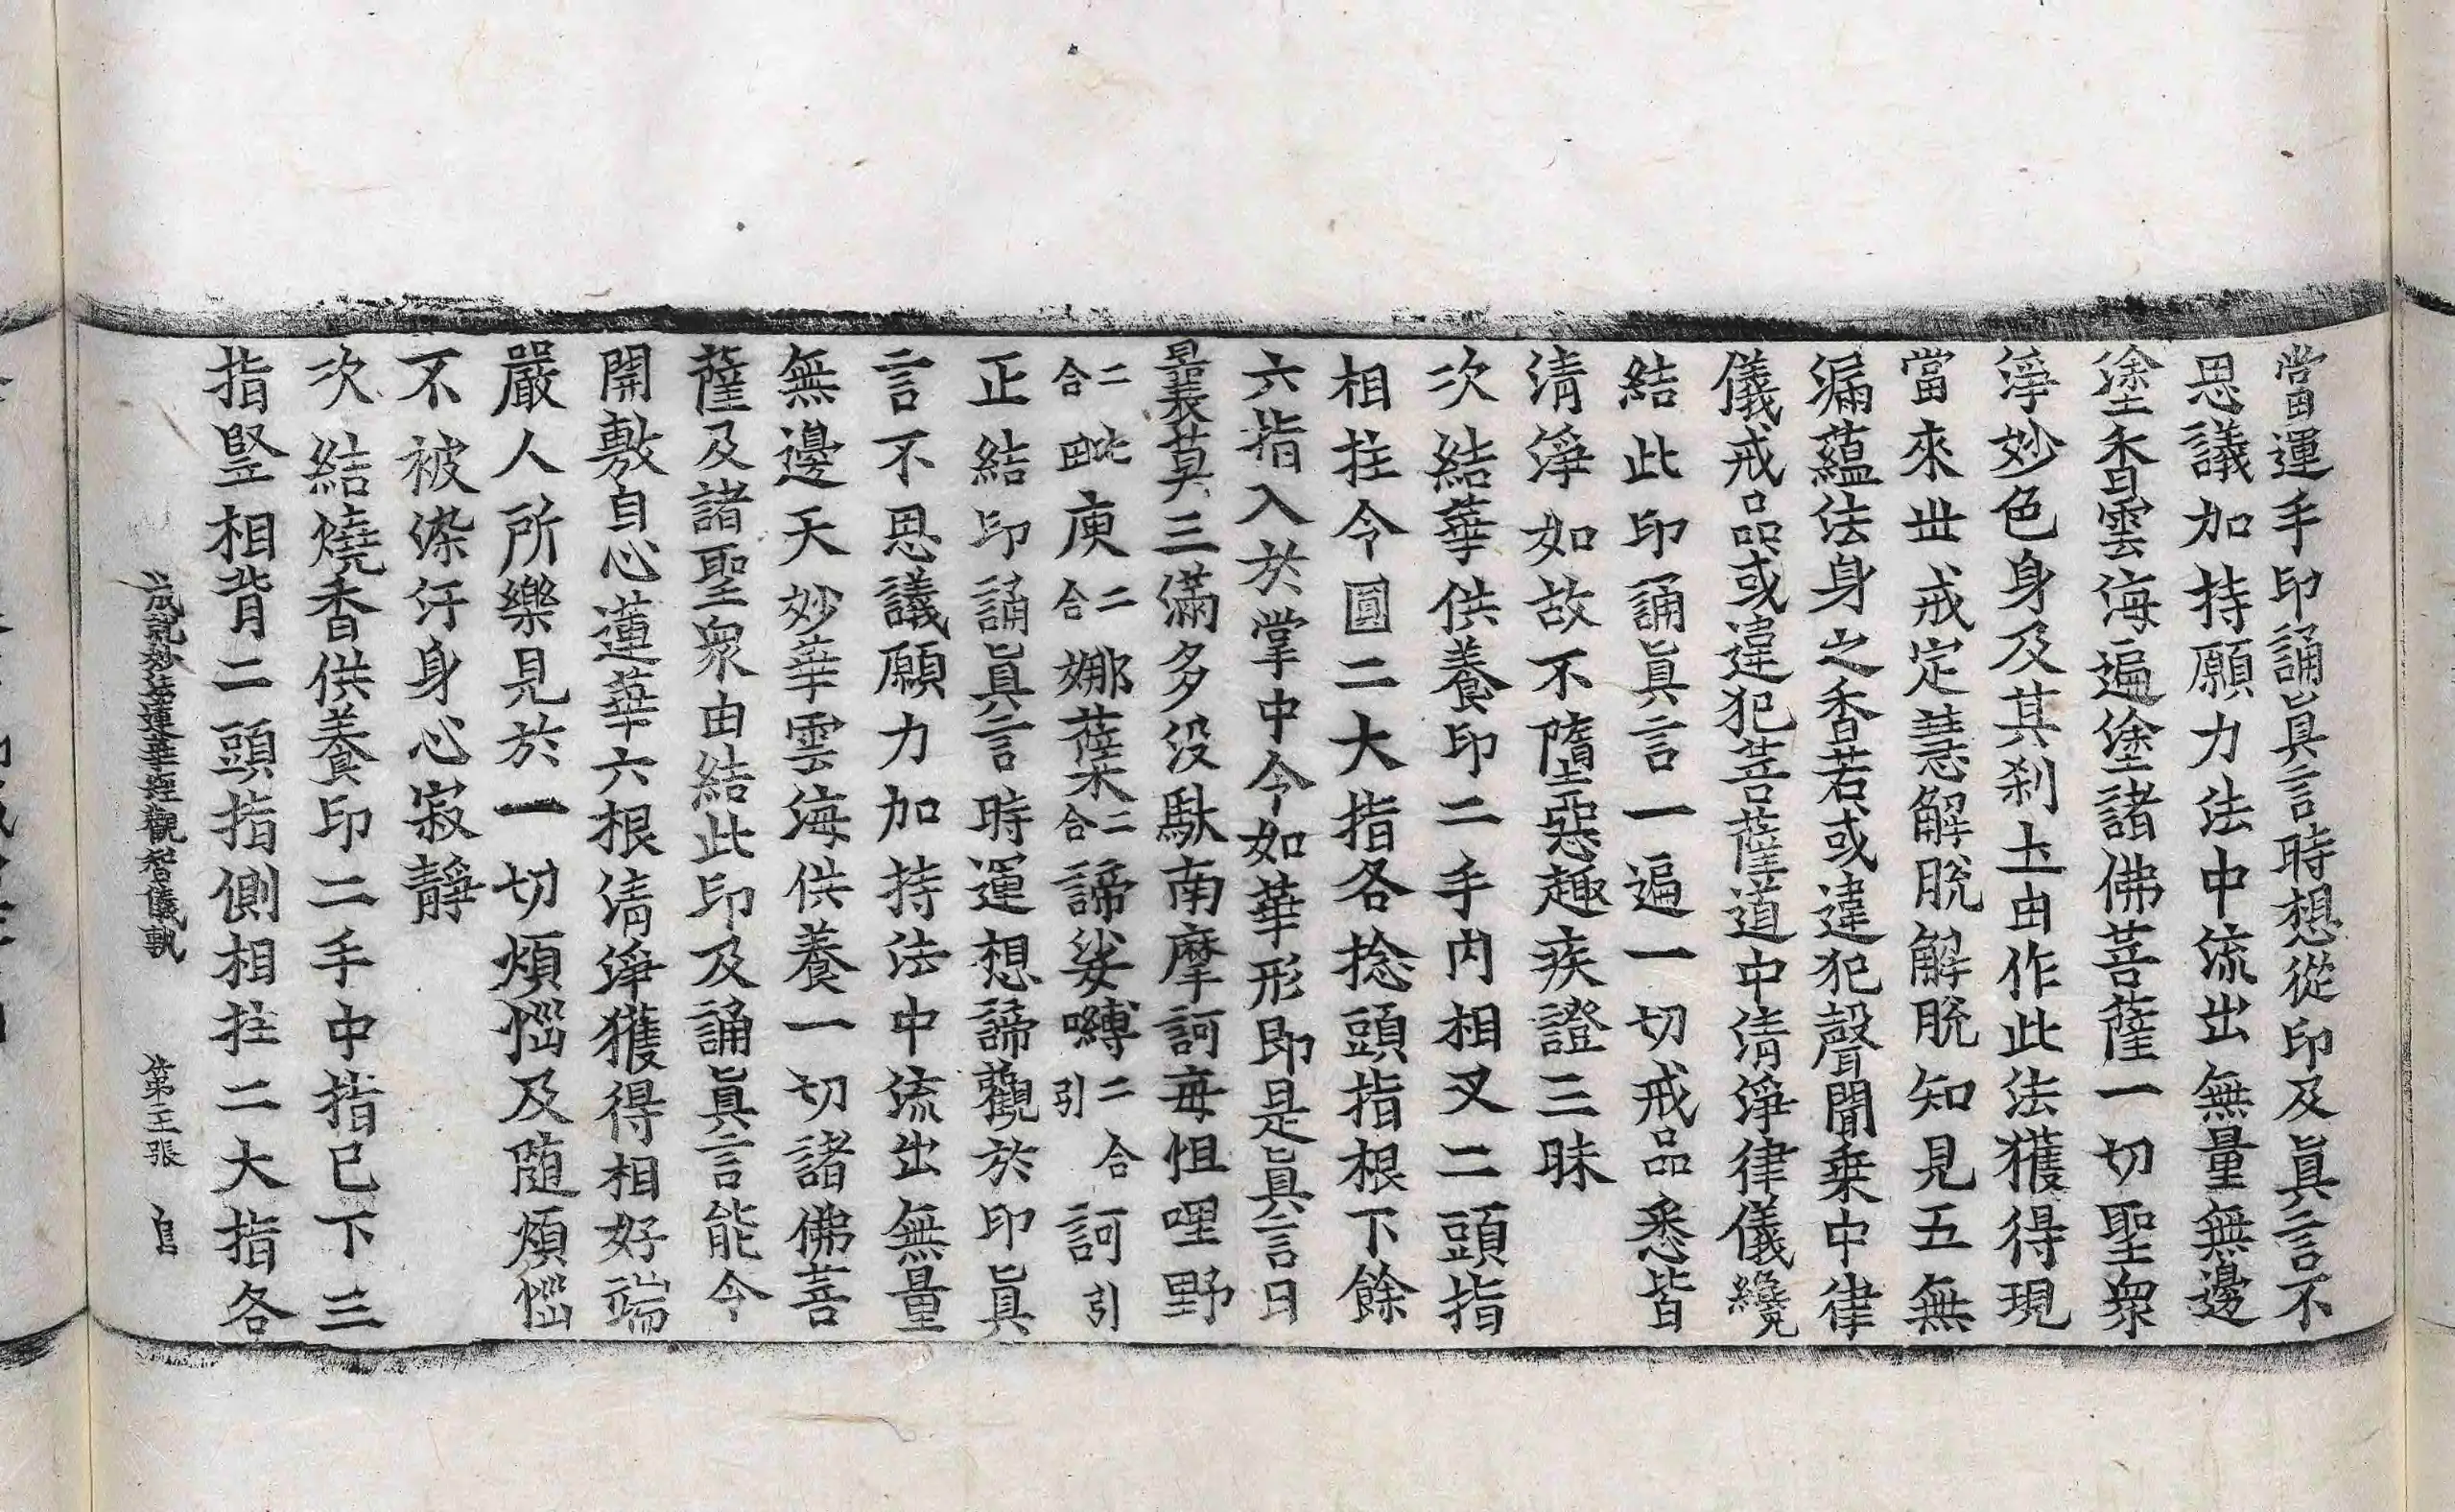 當運手印誦眞言時想從印及眞言不
思議加持願力法中流出無量無邊
塗香雲海遍塗諸佛菩薩一切聖衆
淨妙色身及其刹土由作此法獲得現
當來世戒定慧解脫解脫知見五無
漏蘊法身之香若或違犯聲聞乗中律
儀戒品或違犯菩薩道中清淨律儀纔
結此印誦眞言一遍一切戒品悉皆
清淨如故不墮惡趣疾證三昧
次結華供養印二手内相叉二頭指
相拄令圓二大指各捻頭指根下餘
六指入於掌中令如華形即是眞言曰
曩莫三滿多没馱南摩訶每怛哩野
二合毗庾二合娜蘖二合諦娑嚩二合引訶引
正結印誦眞言時運想諦觀於印眞
言不思議願力加持法中流出無量
無邊天妙華雲海供養一切諸佛菩
薩及諸聖衆由結此印及誦眞言能令
開敷自心蓮華六根清淨獲得相好端
嚴人所樂見於一切煩惱及随煩惱
不被染汙身心寂靜
次結燒香供養印二手中指已下三
指竪相背二頭指側相拄二大指各
成就妙法蓮華經觀智儀軌 第三張 自